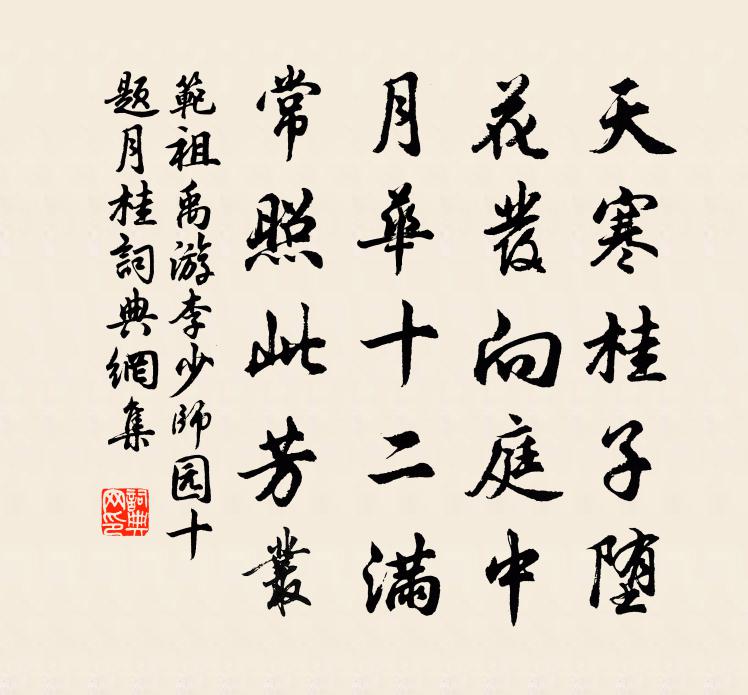 天寒桂子堕
花發向庭中
月華十二满
常照此芳叢
範祖禹游李少師园十
题月桂詞典網集
詞典网印